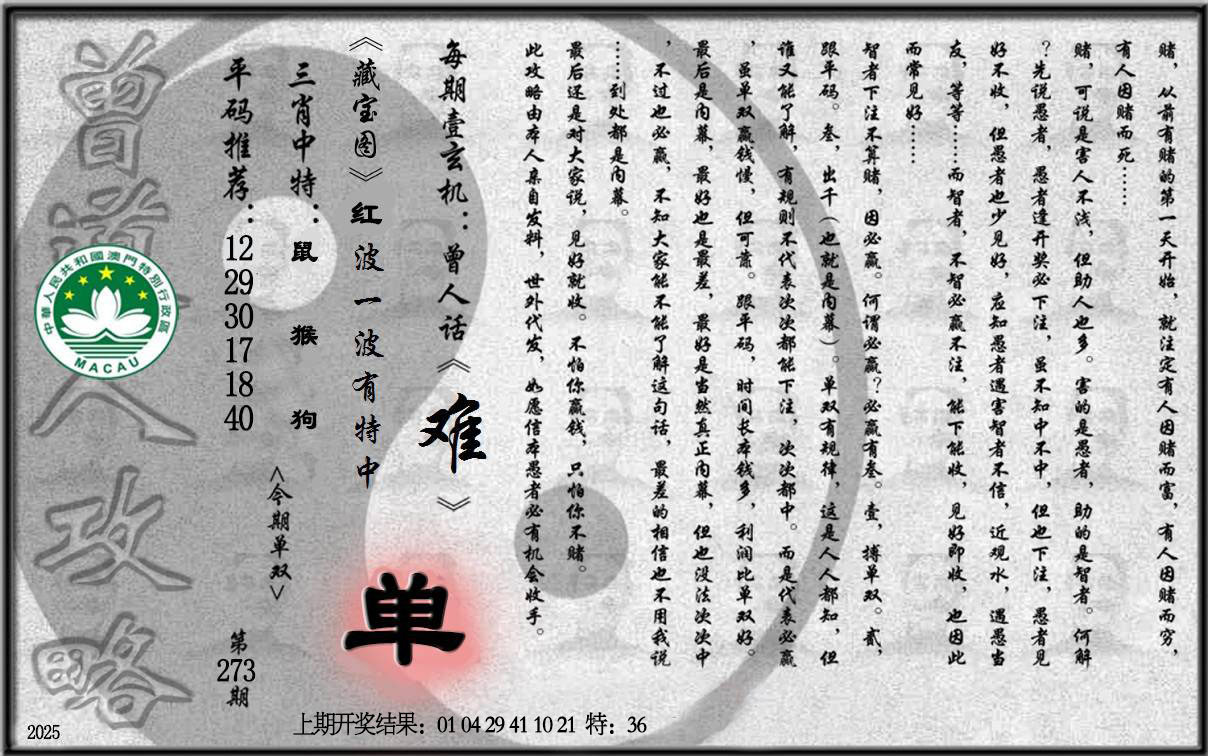 赌，从前有赌的第一天开始，就注定有人因赌而富，有人因赌而穷，
有人因赌而死……
赌，可说是害人不浅，但助人也多。害的是愚者，助的是智者。何解
？先说愚者，愚者逢开奖必下注，虽不知中不中，但也下注，愚者见
好不收，但愚者也少见好，应知愚者遇害智者不信，近观水，遇愚当
友，等等……而智者，不智必赢不注，能下能收，见好即收，也因此
而常见好……
智者下注不算赌，因必赢。何谓必赢？必赢有叁。壹，搏单双。贰，
跟平码。叁，出千（也就是内幕）。单双有规律，这是人人都知，但
谁又能了解，有规则不代表次次都能下注，次次都中。而是代表必赢
，虽单双赢钱慢，但可靠。跟平码，时间长本钱多，利润比单双好。
最后是内幕，最好也是最差，最好是当然真正内幕，但也没法次次中
，不过也必赢，不知大家能不能了解这句话，最差的相信也不用我说
……到处都是内幕。
最后还是对大家说，见好就收。不怕你赢钱，只怕你不赌。
此攻略由本人亲自发料，世外代发，如愿信本愚者必有机会收手。
每期壹玄机：曾人话《难》
《藏宝图》红波一波有特中
单
三肖中特：鼠 猴 狗
<今期单双>
平码推荐：12 29 30 17 18 40
第273期
曾道人攻略
中華人民共和國澳門特別行政區
MACAU
上期开奖结果：01 04 29 41 10 21 特：36
2025